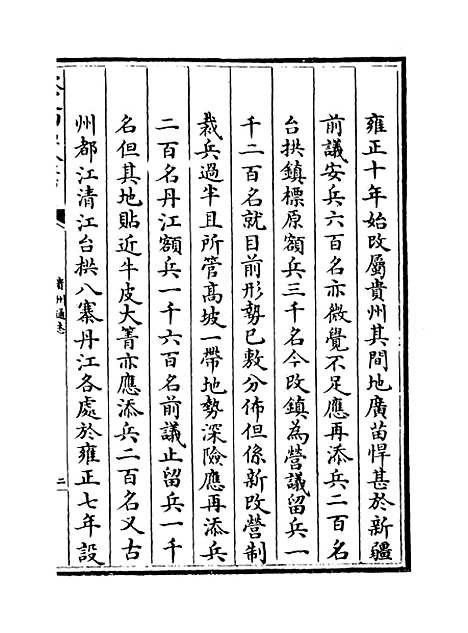 雍正十年始改屬貴州其間地廣苗悍甚於新疆
前議安兵六百名亦微覺不足應再添兵二百名
台拱鎮標原額兵三千名今改鎮為營議留兵一
千二百名就目前形勢已敷分佈但係新改營制
裁兵過半且所管髙坡一帶地勢深險應再添兵
二百名丹江額兵一千六百名前議止留兵一千
名但其地貼近牛皮大箐亦應添兵二百名又古
州都江清江台拱八寨丹江各處於雍正七年設
貴州通志
二